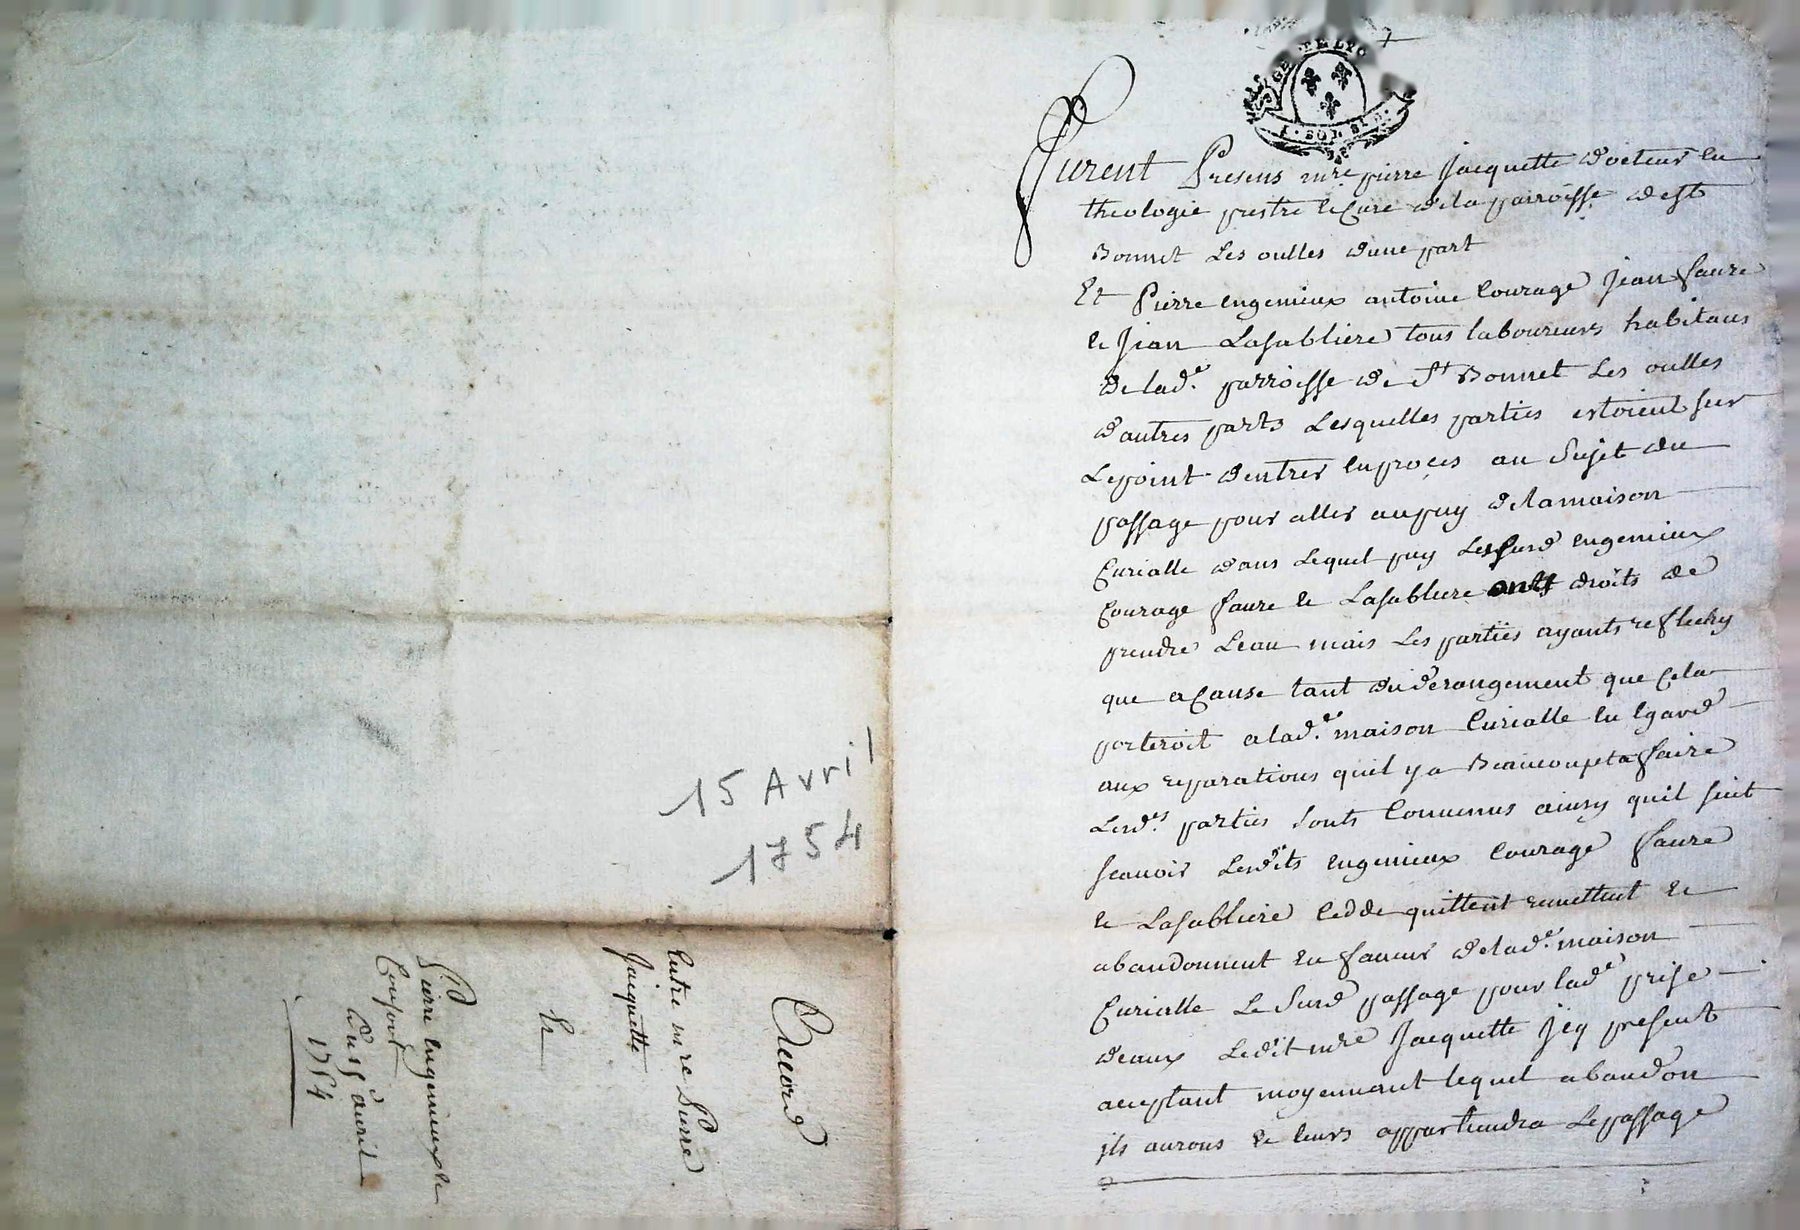 15 Avril
1754
Accord
Entre mre Pierre
Jacquette
Et
Pierre engenieux et
Consort
du 15e avril
1754
GE DE LYO
SOL
furent Presens mre pierre Jacquette docteur en
theologie prestre et Curé de la parroisse de st
Bonnet Les oulles dune part
Et Pierre engenieux antoine Courage Jean faure
et Jean Lasabliere tous laboureurs habitans
de lad.e parroisse de St Bonnet Les oulles
dautres parts Lesquelles parties estoient sur
Lepoint dentrer en proces au Sujet du
passage pour aller au puy de la maison
Curialle dans Lequel puy Les susd engenieux
Courage faure et Lasabliere ont droits de
prendre Leau mais Les parties ayants reflechy
que a Cause tant du derangement que Cela
porteroit a lad.e maison Curialle en Egard
aux reparations quil y a Beaucoup a faire
Lesd.es parties sonts Convenus ainsy quil suit
scavoir Lesdits engenieux Courage faure
et Lasabliere cedde quittent remettent et
abandonnent en faveur de lad.e maison
Curialle Le Susd passage pour lad.e prise
deaux Ledit mre Jacquette jcy present
acceptant moyennant lequel abandon
ils aurons et leurs appartiendra Le passage